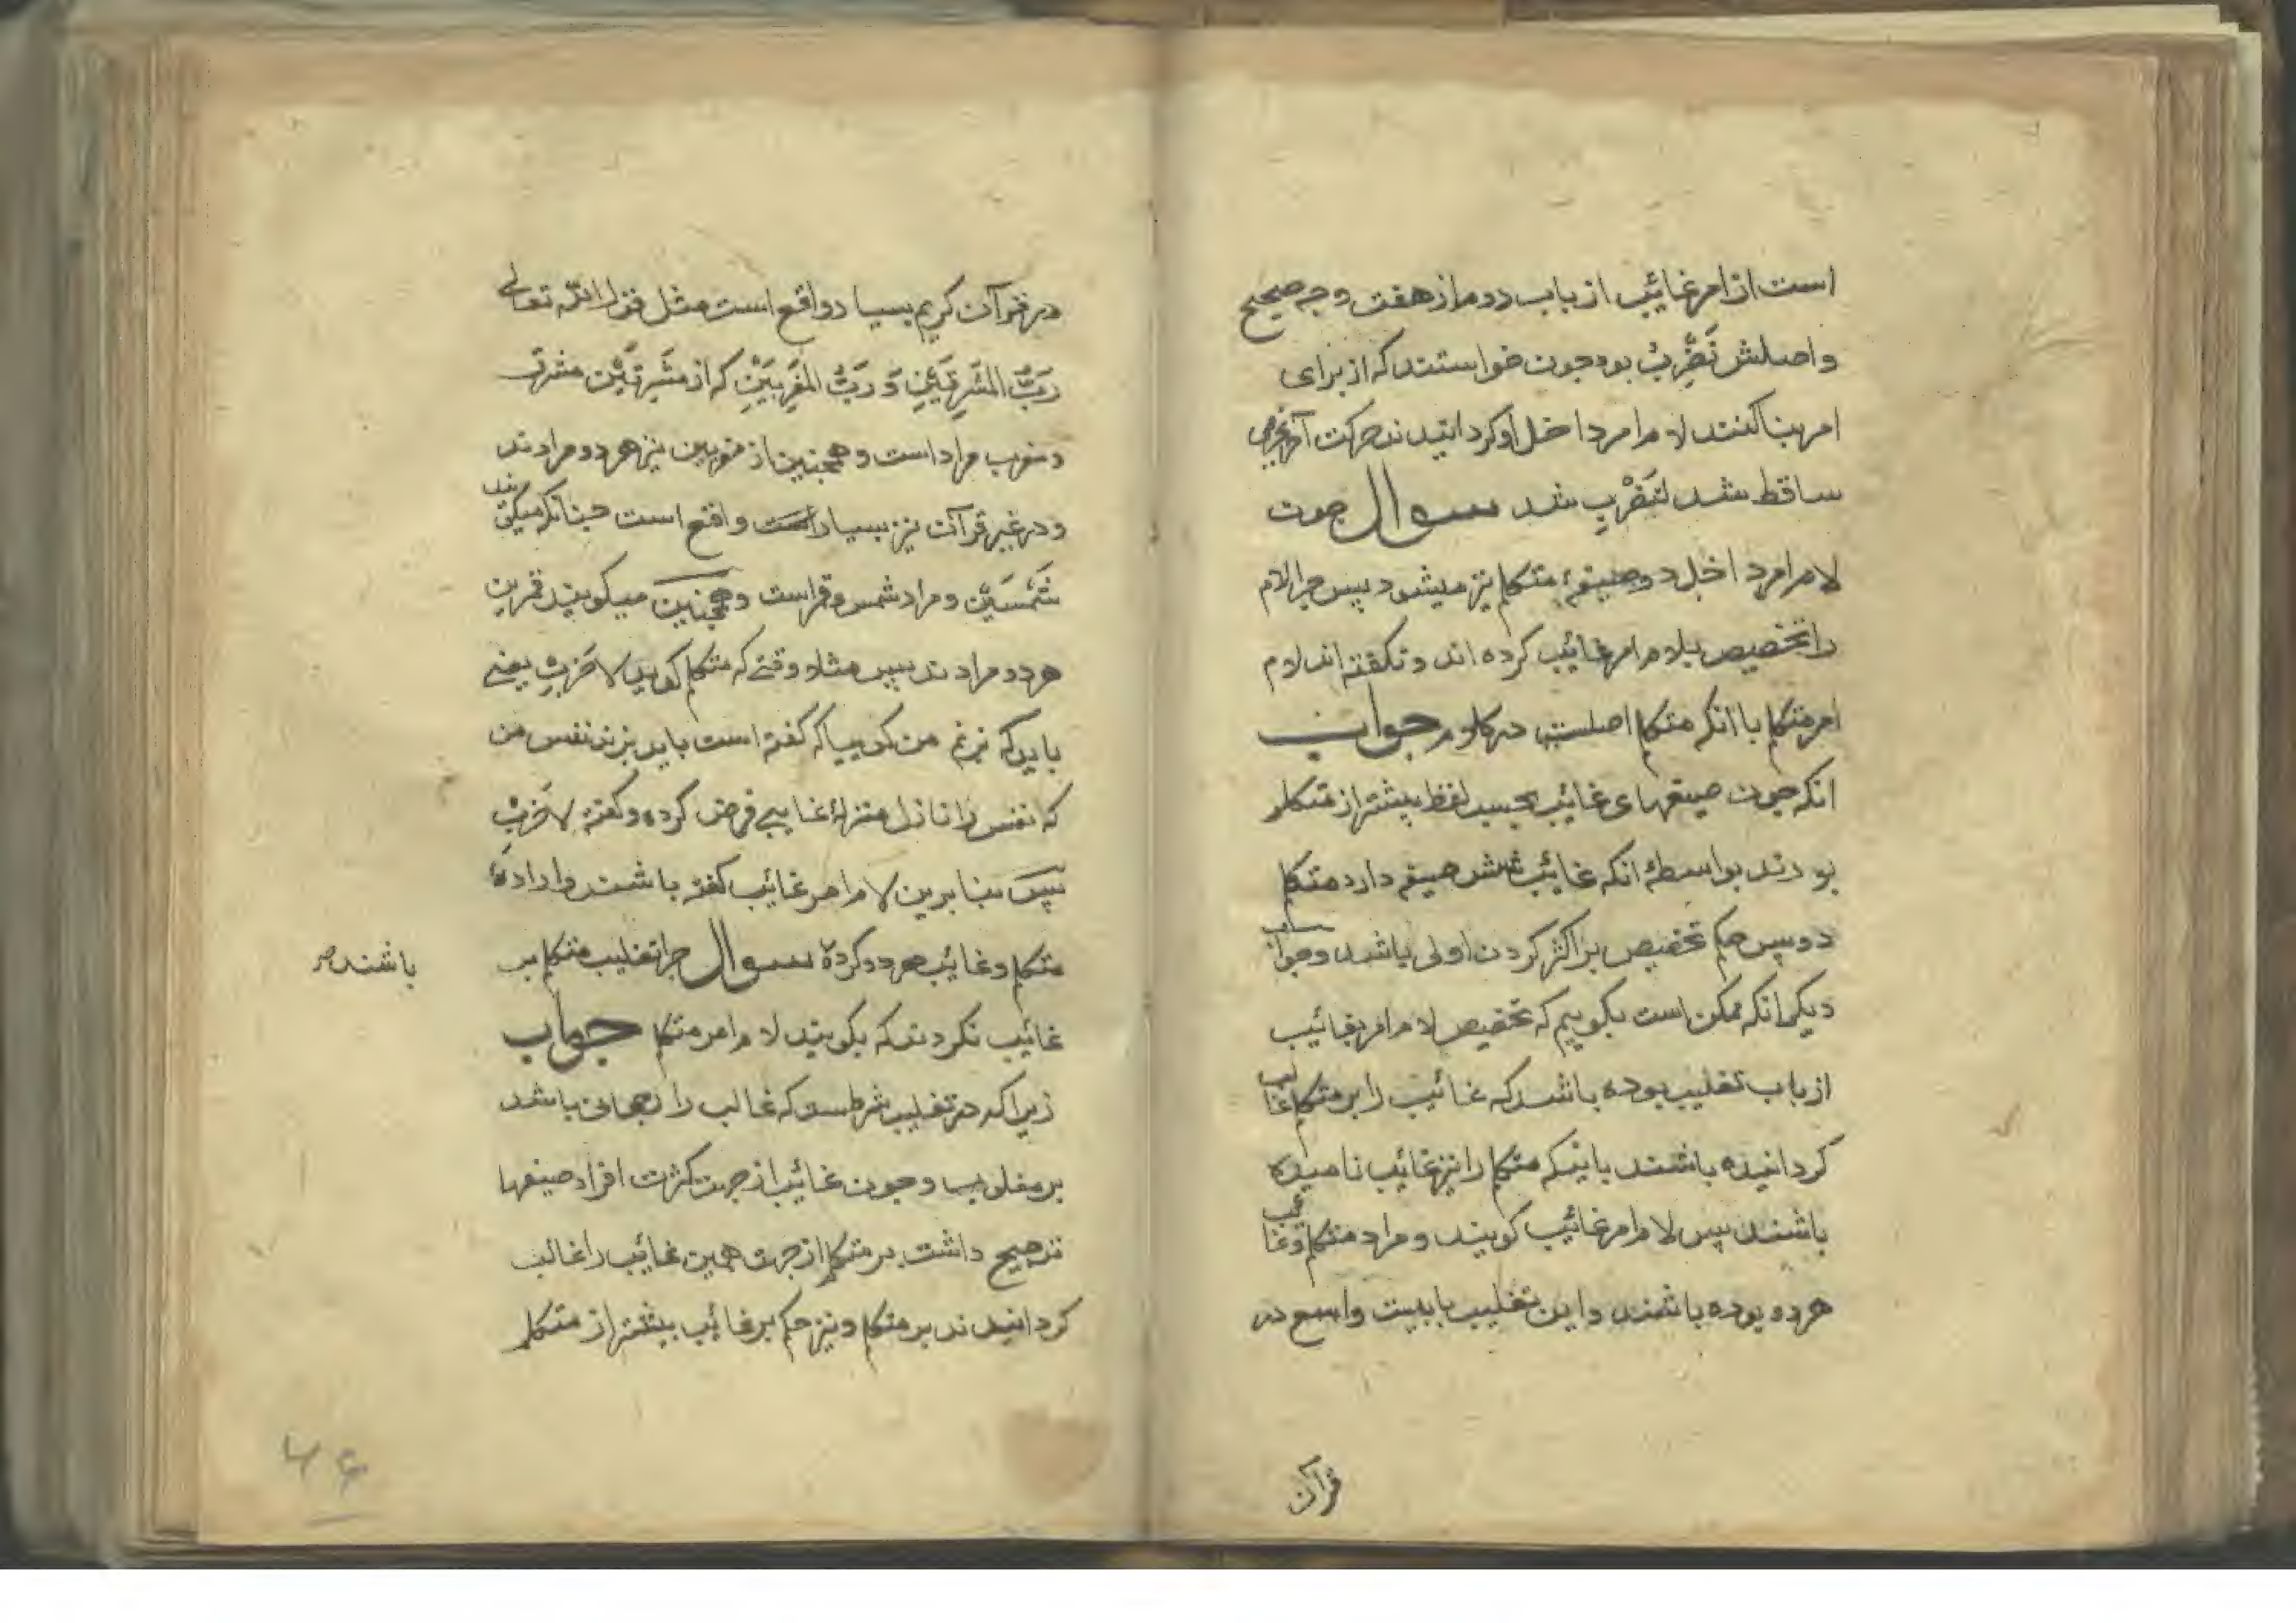 است از امر غائیب از باب دوم از هفت وجه صحیح
واصلش نَضْرِبُ بود جون خواستند که از برای
امر بنا کنند لام امر داخل او کردانیدند حرکت آخر بجزمی
ساقط شد لنَضْرِب شد سوال جون
لام امر داخل دو صیغهٔ متکلم نیز میشود پس جرا لام
را تخصیص بلام امر غائیب کرده اند و نکفته اند لام
امر متکلم با انکه متکلم اصلست در کلام جواب
انکه جون صیغهای غائیب بحسب لفظ بیشتر از متکلم
بودند بواسطهٔ انکه غائیب شش صیغه دارد متکلم
دو پس حکم تخصیص بر اکثر کردن اولی باشد وجواب
دیکر انکه ممکن است بکوییم که تخصیص لام امر بغائیب
از باب تغلیب بوده باشد که غائیب را بر متکلم غالب
کردانیده باشند باینکه متکلم را نیز غائیب نامیده
باشند پس لام امر غائیب کویند و مراد متکلم وغائب
هر دو بوده باشند واین تغلیب بابیست واسع در
قرآن
در قرآن کریم بسیار واقع است مثل قول الله تعالی
رَبُّ المَشْرِقَیْنِ وَ رَبُّ المَغْرِبَیْنِ که از مَشْرِقَیْن مشرق
ومغرب مراد است وهمجنین از مغربین نیز هر دو مرادند
ودر غیر قرآن نیز بسیار است واقع است جنانکه میکویند
شَمْسَیْن ومراد شمس وقمر است وهمجنین میکویند قمرین
هر دو مرادند پس مثلا وقتی که متکلم کوید لاضرب یعنی
باید که بزنم من کوییا که کفته است باید بزند نفس من
که نفس را نازل منزلهٔ غایبی فرض کرده وکفته لاضرب
پس بنابرین لام امر غائیب کفته باشند وارادهٔ
متکلم وغائیب هر دو کرده سوال جرا تغلیب متکلم بر
باشند صح
غائیب نکردند که بکویند لام امر متکلم جواب
زیرا که در تغلیب شرطست که غالب را رجحانی باشد
بر مغلوب وجون غائیب از جهت کثرت افراد صیغها
ترجیح داشت بر متکلم از جهت همین غائیب را غالب
کردانیدند بر متکلم ونیز حکم بر غائیب بیشتر از متکلم
۴۶